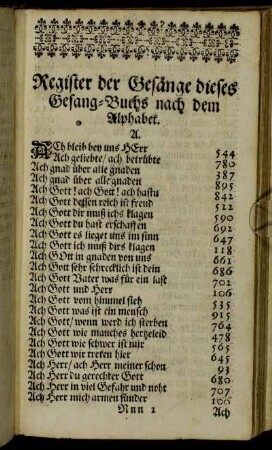 Register der Gesänge dieses
Gesang-Buchs nach dem
Alphabet.
A.
ACh bleib bey uns HErr 544
Ach geliebte/ ach betrübte 780
Ach gnad über alle gnaden 387
Ach gnad über alle gnaden 895
Ach Gott! ach Gott! ach hastu 842
Ach Gott dessen reich ist freud 522
Ach Gott dir muß ichs klagen 590
Ach Gott du hast erschaffen 692
Ach Gott es lieget uns im sinn 647
Ach Gott ich muß dirs klagen 118
Ach GOtt in gnaden von uns 661
Ach Gott sehr schrecklich ist dein 686
Ach Gott Vater was für ein last 702
Ach Gott und Herr 106
Ach Gott vom himmel sieh 535
Ach Gott was ist ein mensch 915
Ach Gott/ wenn werd ich sterben 764
Ach Gott wie manches hertzeleid 478
Ach Gott wie schwer ist mir 565
Ach Gott wir treten hier 645
Ach Herr/ ach Herr meiner schon 93
Ach Herr du gerechter Gott 680
Ach Herr in viel Gefahr und noht 707
Ach Herr mich armen sünder 100
Nnn 2 Ach